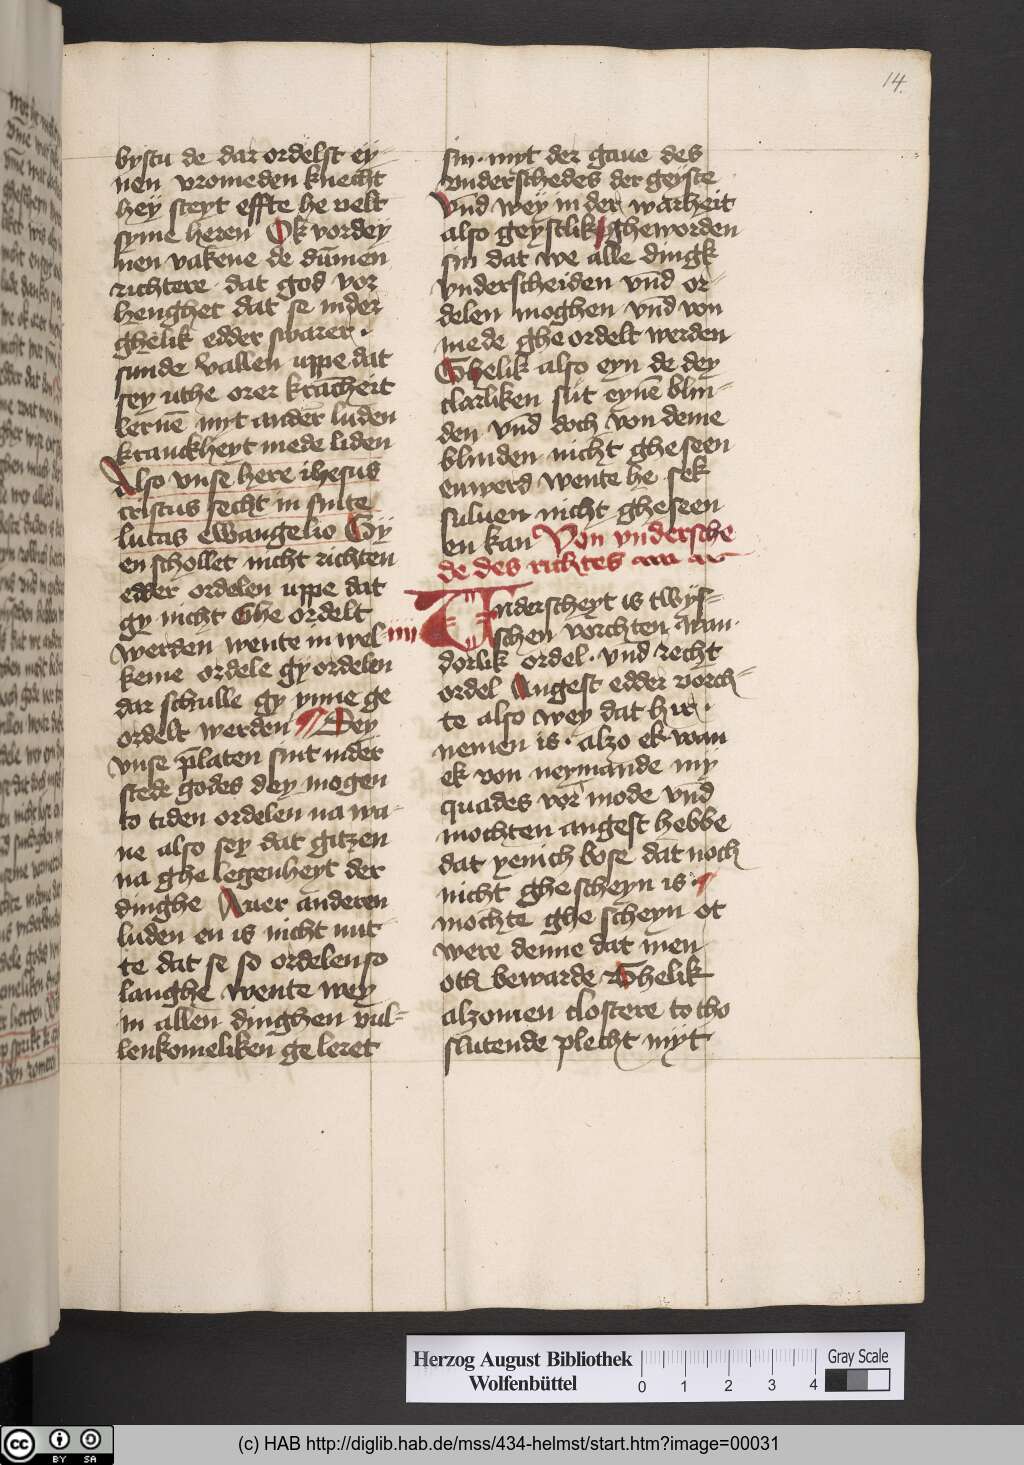 14.
bystu de dar ordelst ey-
nen vromeden knecht
hey steyt effte he velt
syme heren Ok vordey
nen vakene de dūmen
richtere dat god vor
henghet dat se in der
ghelik edder swarer
sunde vallen uppe dat
sey uthe orer krācheit
lernē myt ander luden
kranckheyt mede liden
Also vnse here ihesus
cristus secht in sunte
lucas ewangelio Gy
en schollet nicht richten
edder ordelen uppe dat
gy nicht Ghe ordelt
werden wente in wel-
keme ordele gy ordelen
dar schulle gy ynne ge
ordelt werden ¶ Dey
vnse p̄laten sint in der
stede godes dey mogen
to tiden ordelen na wa-
ne also sey dat gitzen
na ghe legenheyt der
dinghe Auer anderen
luden en is nicht nut
te dat se so ordelen so
langhe wente wey
in allen dinghen vul-
lenkomeliken ge leret
sin. myt der gaue des
vnderschedes der geyste
Vnd wey in der warheit
also geystlik gheworden
sin dat we alle dingk
vnderscheiden vnd or-
delen moghen vnd von
mede ghe ordelt werden
Ghelik also eyn de dey
clarliken sut eynē blin-
den vnd doch von deme
blinden nicht gheseen
enwerd wente he sek
suluen nicht gheseen
en kan Von vndersche
de des richtes
iiii Vnderscheyt is twys-
schen vorchten,
dorlik ordel. vnd recht
ordel Angest edder vorch-
te also wey dat hir
nemen is. alzo ek wan
ek von neymande my
quades vor mode vnd
mochten angest hebbe
dat yenich bose dat noch
nicht ghescheyn is
mochte ghe scheyn ot
were denne dat men
oth bewarde Ghelik
alzomen clostere to tho
slutende plecht myt
Herzog August Bibliothek
Wolfenbüttel
0 1 2 3 4
Gray Scale
cc BY SA
(c) HAB http://diglib.hab.de/mss/434-helmst/start.htm?image=00031